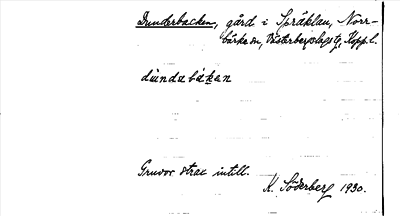 Dunderbacken, gård i Språklan, Norr-
bärke sn, Västerbergslags tg, Kopp. l.
dúndabákan
Gruvor strax intill.
K. Söderberg 1930.